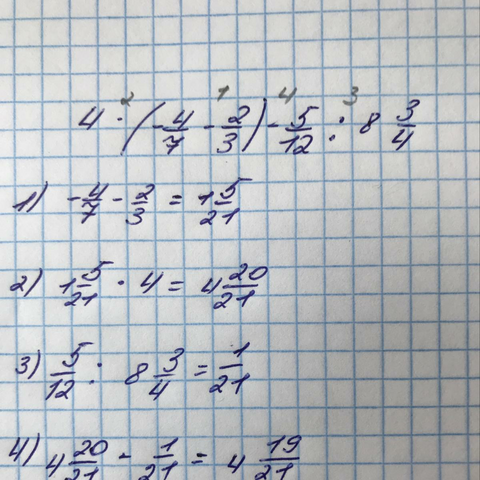 2 1 4 3
4 · (-4/7 - 2/3) - 5/12 : 8 3/4
1) -4/7 - 2/3 = 1 5/21
2) 1 5/21 · 4 = 4 20/21
3) 5/12 : 8 3/4 = 1/21
4) 4 20/21 - 1/21 = 4 19/21